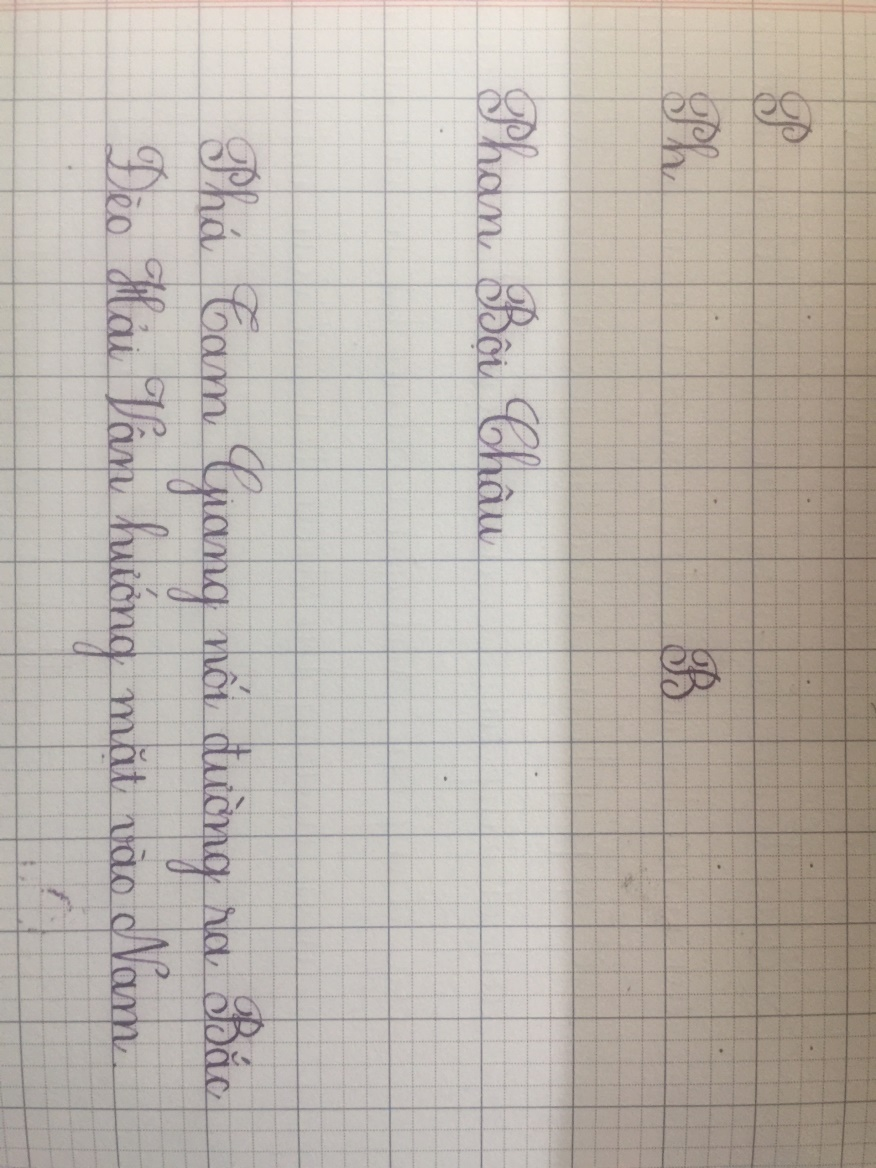 P
Ph B
Phan Bội Châu
Phá Tam Giang nối đường ra Bắc
Đèo Hải Vân hướng mặt vào Nam.